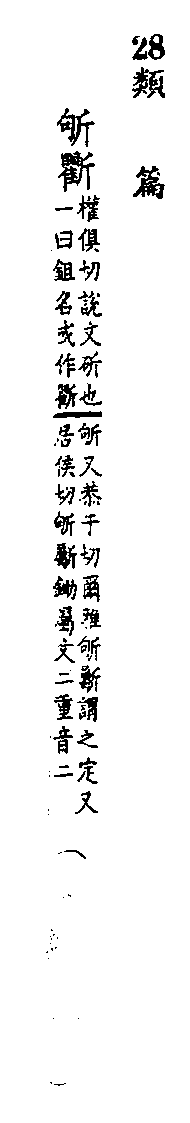 28類 篇
斪
權俱切說文斫也斪又恭于切爾雅斪斸謂之定又
一曰鉏名或作居侯切斪斸鋤屬文二重音二